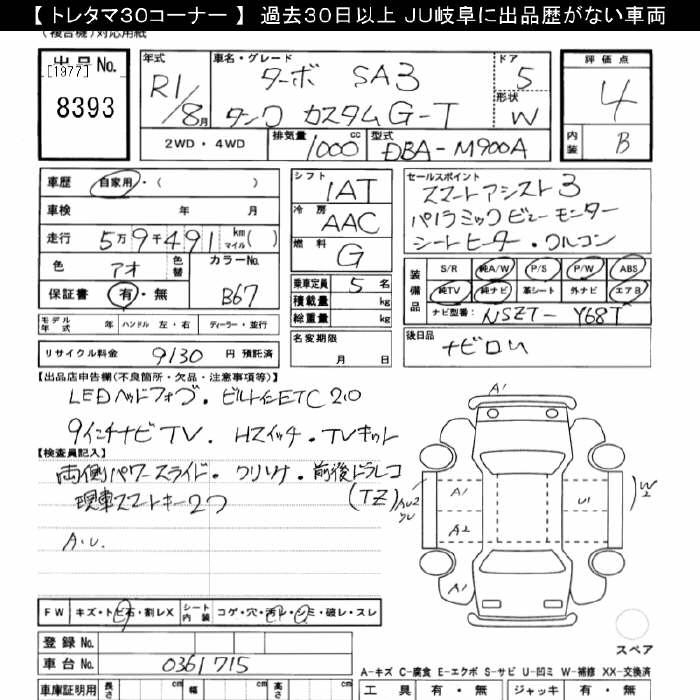 【 トレタマ30コーナー 】 過去30日以上 JU岐阜に出品歴がない車両
(複合機)対応用紙
出品 No.
[1977]
8393
年式
R1/8月
車名・グレード
ターボ SA3
タンク カスタムG-T
ドア
5
形状
W
評価点
4
内装
B
2WD・4WD
排気量
1000 cc
型式
DBA-M900A
車歴 自家用・( )
車検 年 月
走行 5万9千491 km マイル( )
色 アオ 色替 カラーNo. B67
保証書 有・無
シフト
1AT
冷房
AAC
燃料
G
乗車定員 5 名
積載量 kg
総重量 kg
セールスポイント
スマートアシスト3
パノラミックビューモニター
シートヒーター・クルコン
装備品
S/R 純A/W P/S P/W ABS
純TV 純ナビ 革シート 外ナビ エアB
ナビ型番: NSZT-Y68T
モデル年式 年 ハンドル 左・右 ディーラー・並行
名変期限
月 日
後日品
ナビロム
リサイクル料金 9130 円 預託済
【出品店申告欄(不良箇所・欠品・注意事項等)】
LEDヘッドフォグ・ビルトインETC2.0
9インチナビTV.Hスイッチ・TVキット
【検査員記入】
両側パワースライド・クリソナ・前後ドラレコ
現車スマートキー2ツ (TZ)
A・U.
A1
A1
A2
A1
U1
W2
AU2
FW キズ・トビ石・割レX シート内装 コゲ・穴・汚レ・シミ・破レ・スレ
登録 No.
車台 No. 0361715
スペア
A-キズ C-腐食 E-エクボ S-サビ U-凹ミ W-補修 XX-交換済
車庫証明用 長さ cm 幅 cm 高さ cm
工具 有・無 ジャッキ 有・無